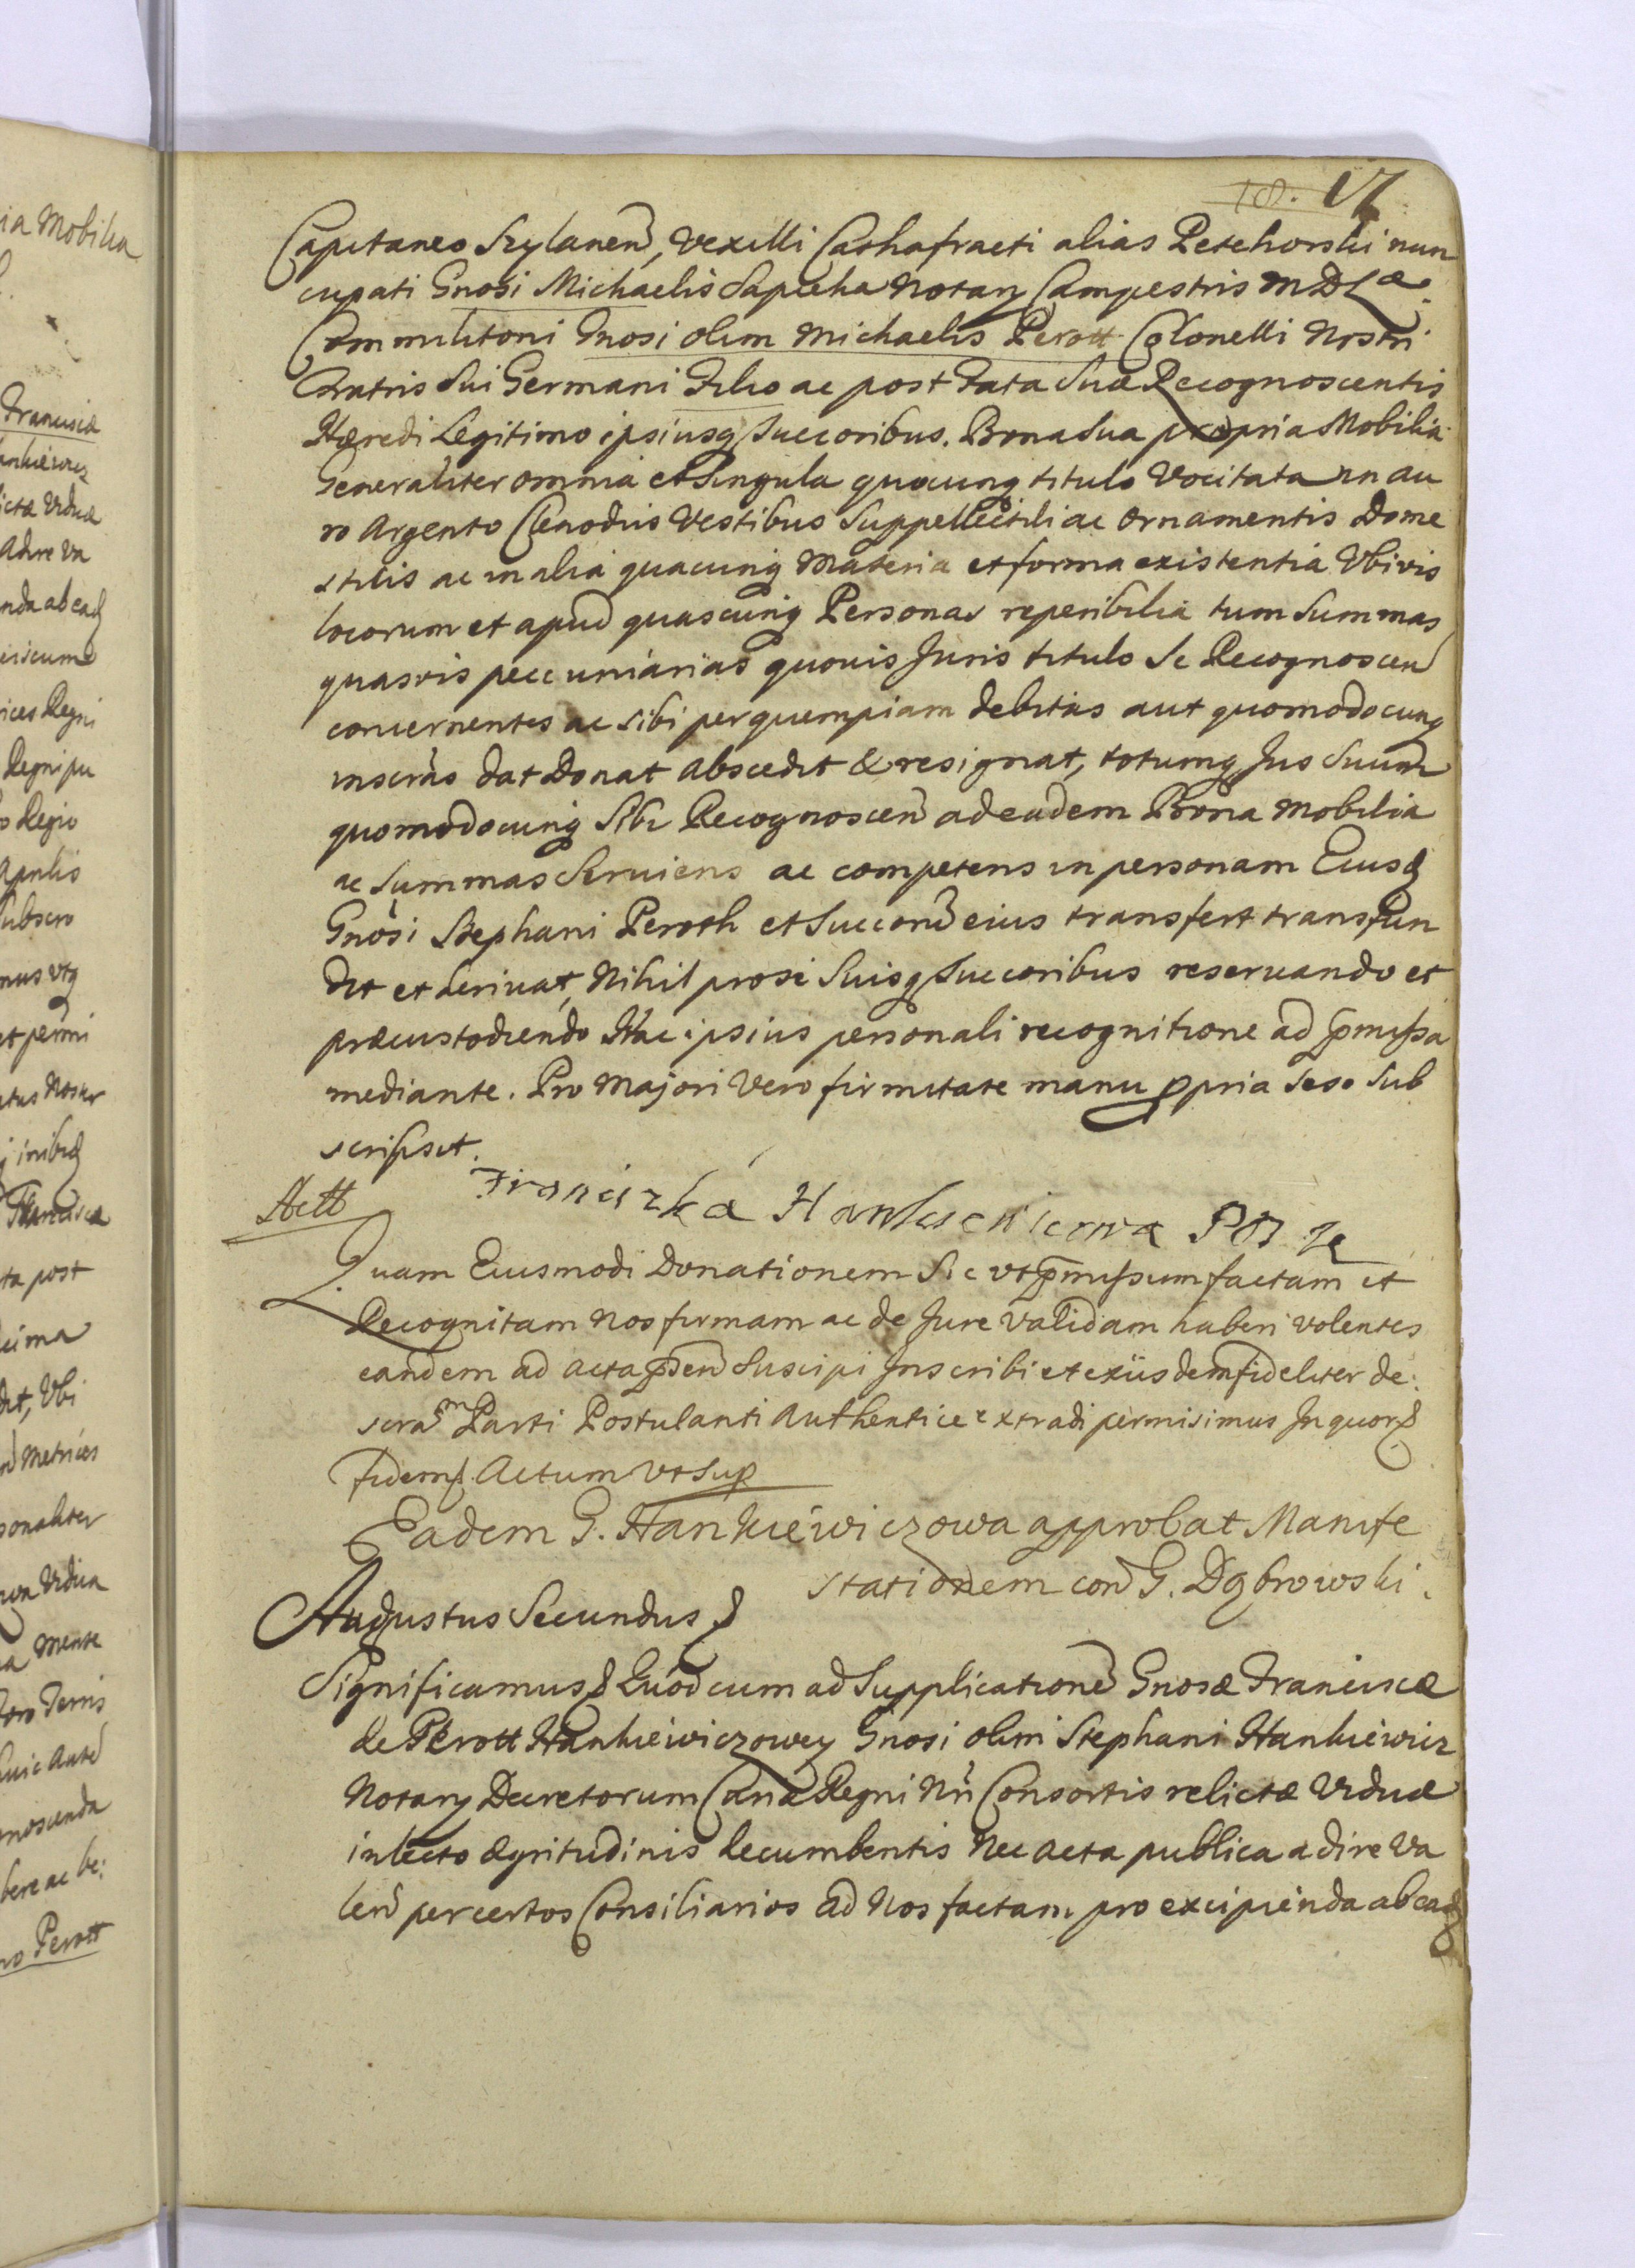 18. 17
Capitaneo Szylanen, Vexilli Cathafracti alias Petehorski nun
cupati Gnosi Michaelis Sapieha Notary Campestris M D Læ.
Commilitoni Gnosi olim Michaelis Perott Colonelli Nostri
Fratris Sui Germani Filio ac post Fata Suæ Recognoscentis
Hæredi Legitimo ipsiusq Succoribus. Bona Sua propria Mobilia
Generaliter omnia et Singula quocunq titulo Vocitata in au
ro Argento Clenodiis Vestibus Suppellectili ac Ornamentis Dome
sticis ac in alia quacunq Materia et forma existentia Vbivis
locorum et apud quascunq Personas reperibilia tum Summas
quasvis peccuniarias quovis Juris titulo Se Recognoscen
concernentes ac sibi per quempiam debitas aut quomodocunq
inscras dat Donat abscedit & resignat, totumq Jus Suum
quomodocunq Sibi Recognoscen ad eadem Bona Mobilia
ac Summas Serviens ac competens in personam Eiusd
Gnosi Stephani Peroth et Succorum eius transfert transfun
dit et derivat, Nihil pro se Suisq Succoribus reservando et
præcustodiendo Hac ipsius personali recognitione ad pmissa
mediante. Pro Majori Vero firmitate manu ppria sese Sub
scripsit.
Franciszka Hankiewiczowa
Quam Eiusmodi Donationem Sic vt pmissum factam et
Recognitam Nos firmam ac de Jure Validam haberi volentes
eandem ad acta psen Suscipi Inscribi et ex iisdem fideliter de:
scram Parti Postulanti Authentice extradi permisimus In quor
fidem Actum vt Sup
Eadem G. Hankiewiczowa approbat Manife
stationem con G. Dąbrowski.
Augustus Secundus
Significamus Quod cum ad Supplicatione Gnosæ Franciscæ
de Perott Hankiewiczowey Gnosi olim Stephani Hankiewicz
Notary Decretorum Cariæ Regni Nri Consortis relictæ Viduæ
in lecto ægritudinis decumbentis Nec acta publica adire Va
len per certos Consiliarios ad Nos factam pro excipienda ab ead